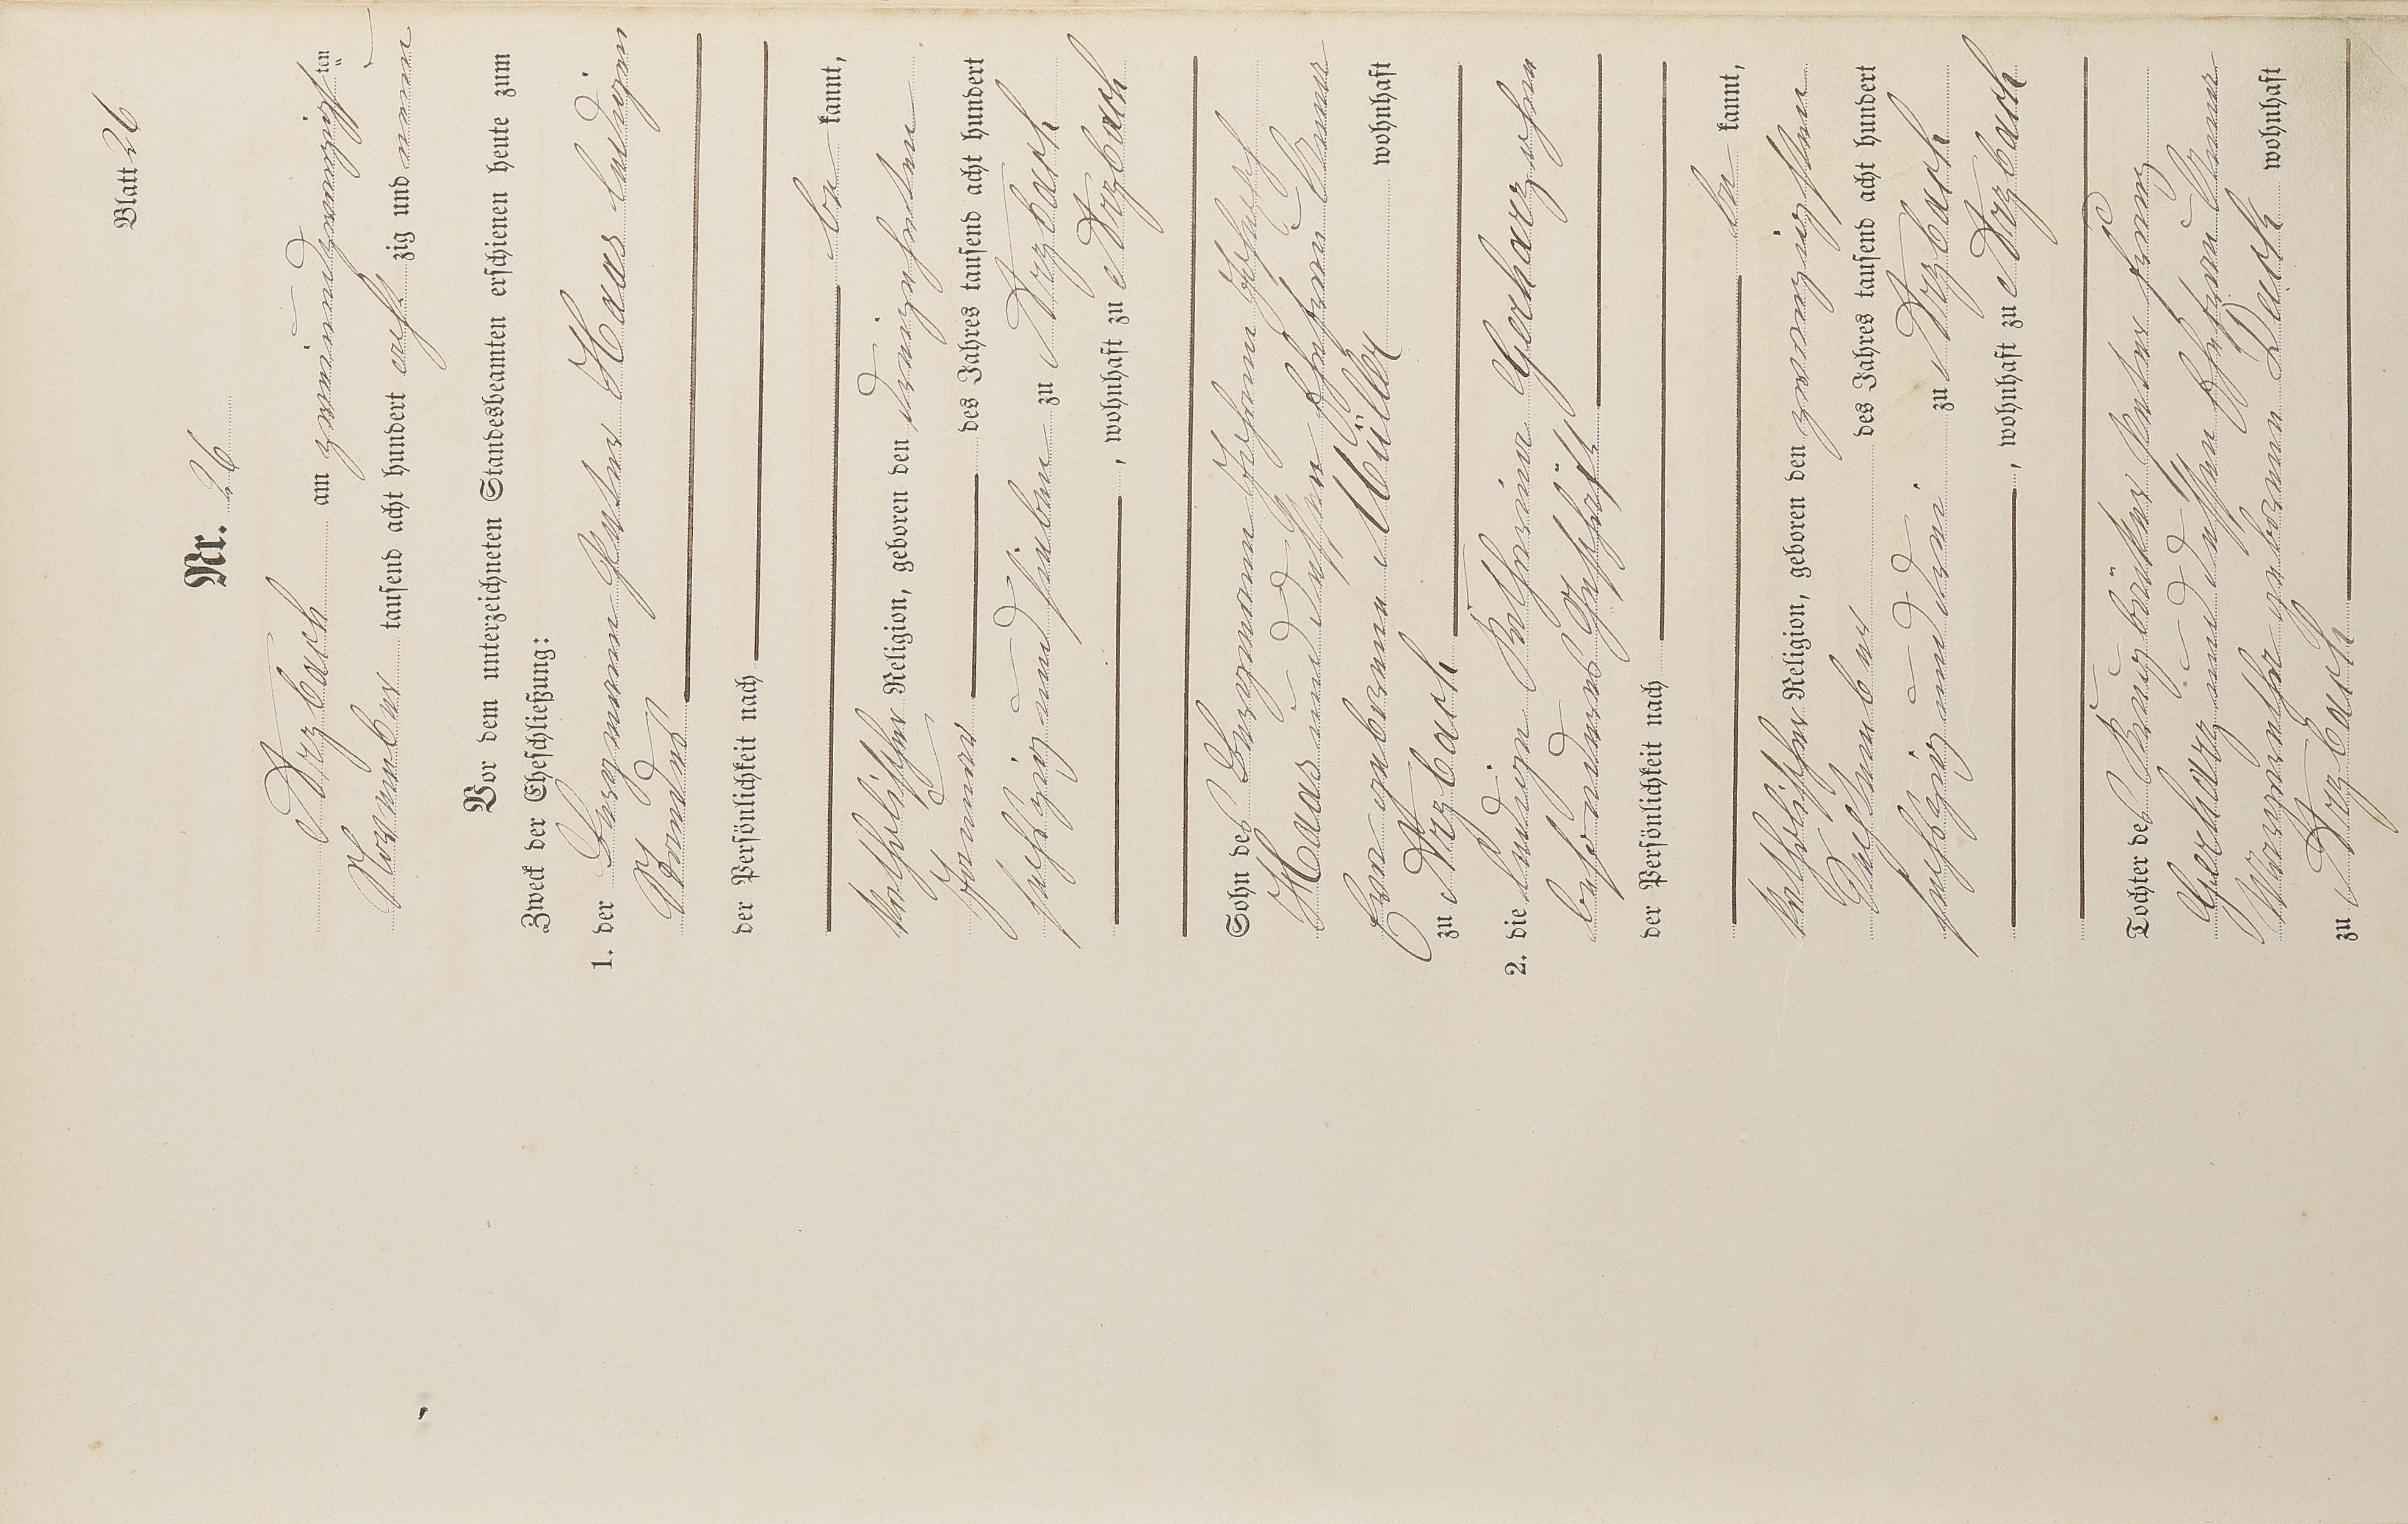 Blatt 26
Nr. 26
Arzbach am zweiundzwanzigsten
November tausend acht hundert acht zig und neun
Vor dem unterzeichneten Standesbeamten erschienen heute zum
Zweck der Eheschließung:
1. der Bergmann Peter Haas ledigen
Standes
der Persönlichkeit nach
be kannt,
katholischer Religion, geboren den dreizehnten
Januar des Jahres tausend acht hundert
sechszig und sieben zu Arzbach
, wohnhaft zu Arzbach
Sohn des Bergmann Johann Joseph
Haas und dessen Ehefrau Anna
Eva geborene Müller wohnhaft
zu Arzbach
2. die ledige Katharina Gerharz ohne
besonderes Geschäft
der Persönlichkeit nach
be kannt,
katholischer Religion, geboren den zwanzigsten
September des Jahres tausend acht hundert
sechszig und drei zu Arzbach
, wohnhaft zu Arzbach
Tochter des Peter Franz
Gerharz und dessen Ehefrau Anna
Margaretha geborene wohnhaft
zu Arzbach